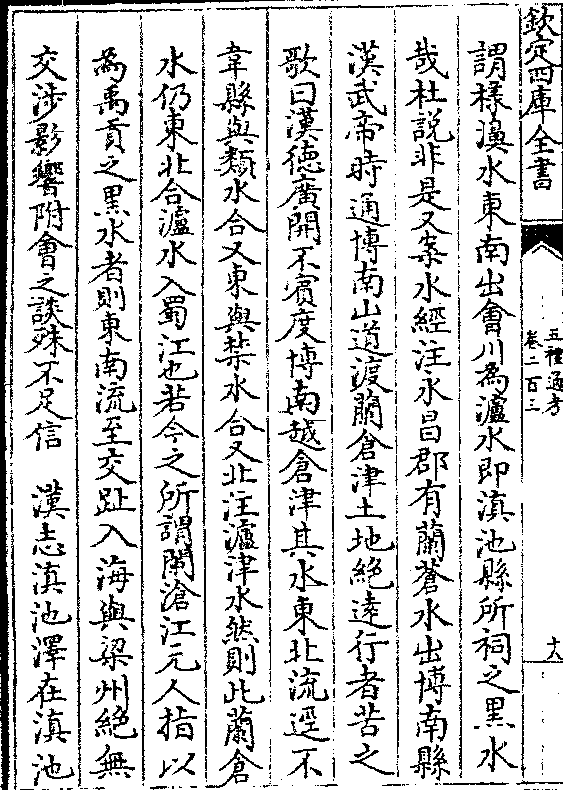 欽定四庫全書
五禮通考
卷二百三
十八
謂樣濞水東南出㑹川為瀘水即滇池縣所祠之黒水
㢤杜説非是又案水經注永昌郡有蘭蒼水出博南縣
漢武帝時通博南山道渡蘭倉津土地絶逺行者苦之
歌曰漢徳廣開不賔度博南越倉津其水東北流逕不
韋縣與類水合又東與禁水合又北注瀘津水然則此蘭倉
水仍東北合瀘水入蜀江也若今之所謂闌滄江元人指以
為禹貢之黒水者則東南流至交趾入海與梁州絶無
交涉影響附㑹之談殊不足信　漢志滇池澤在滇池